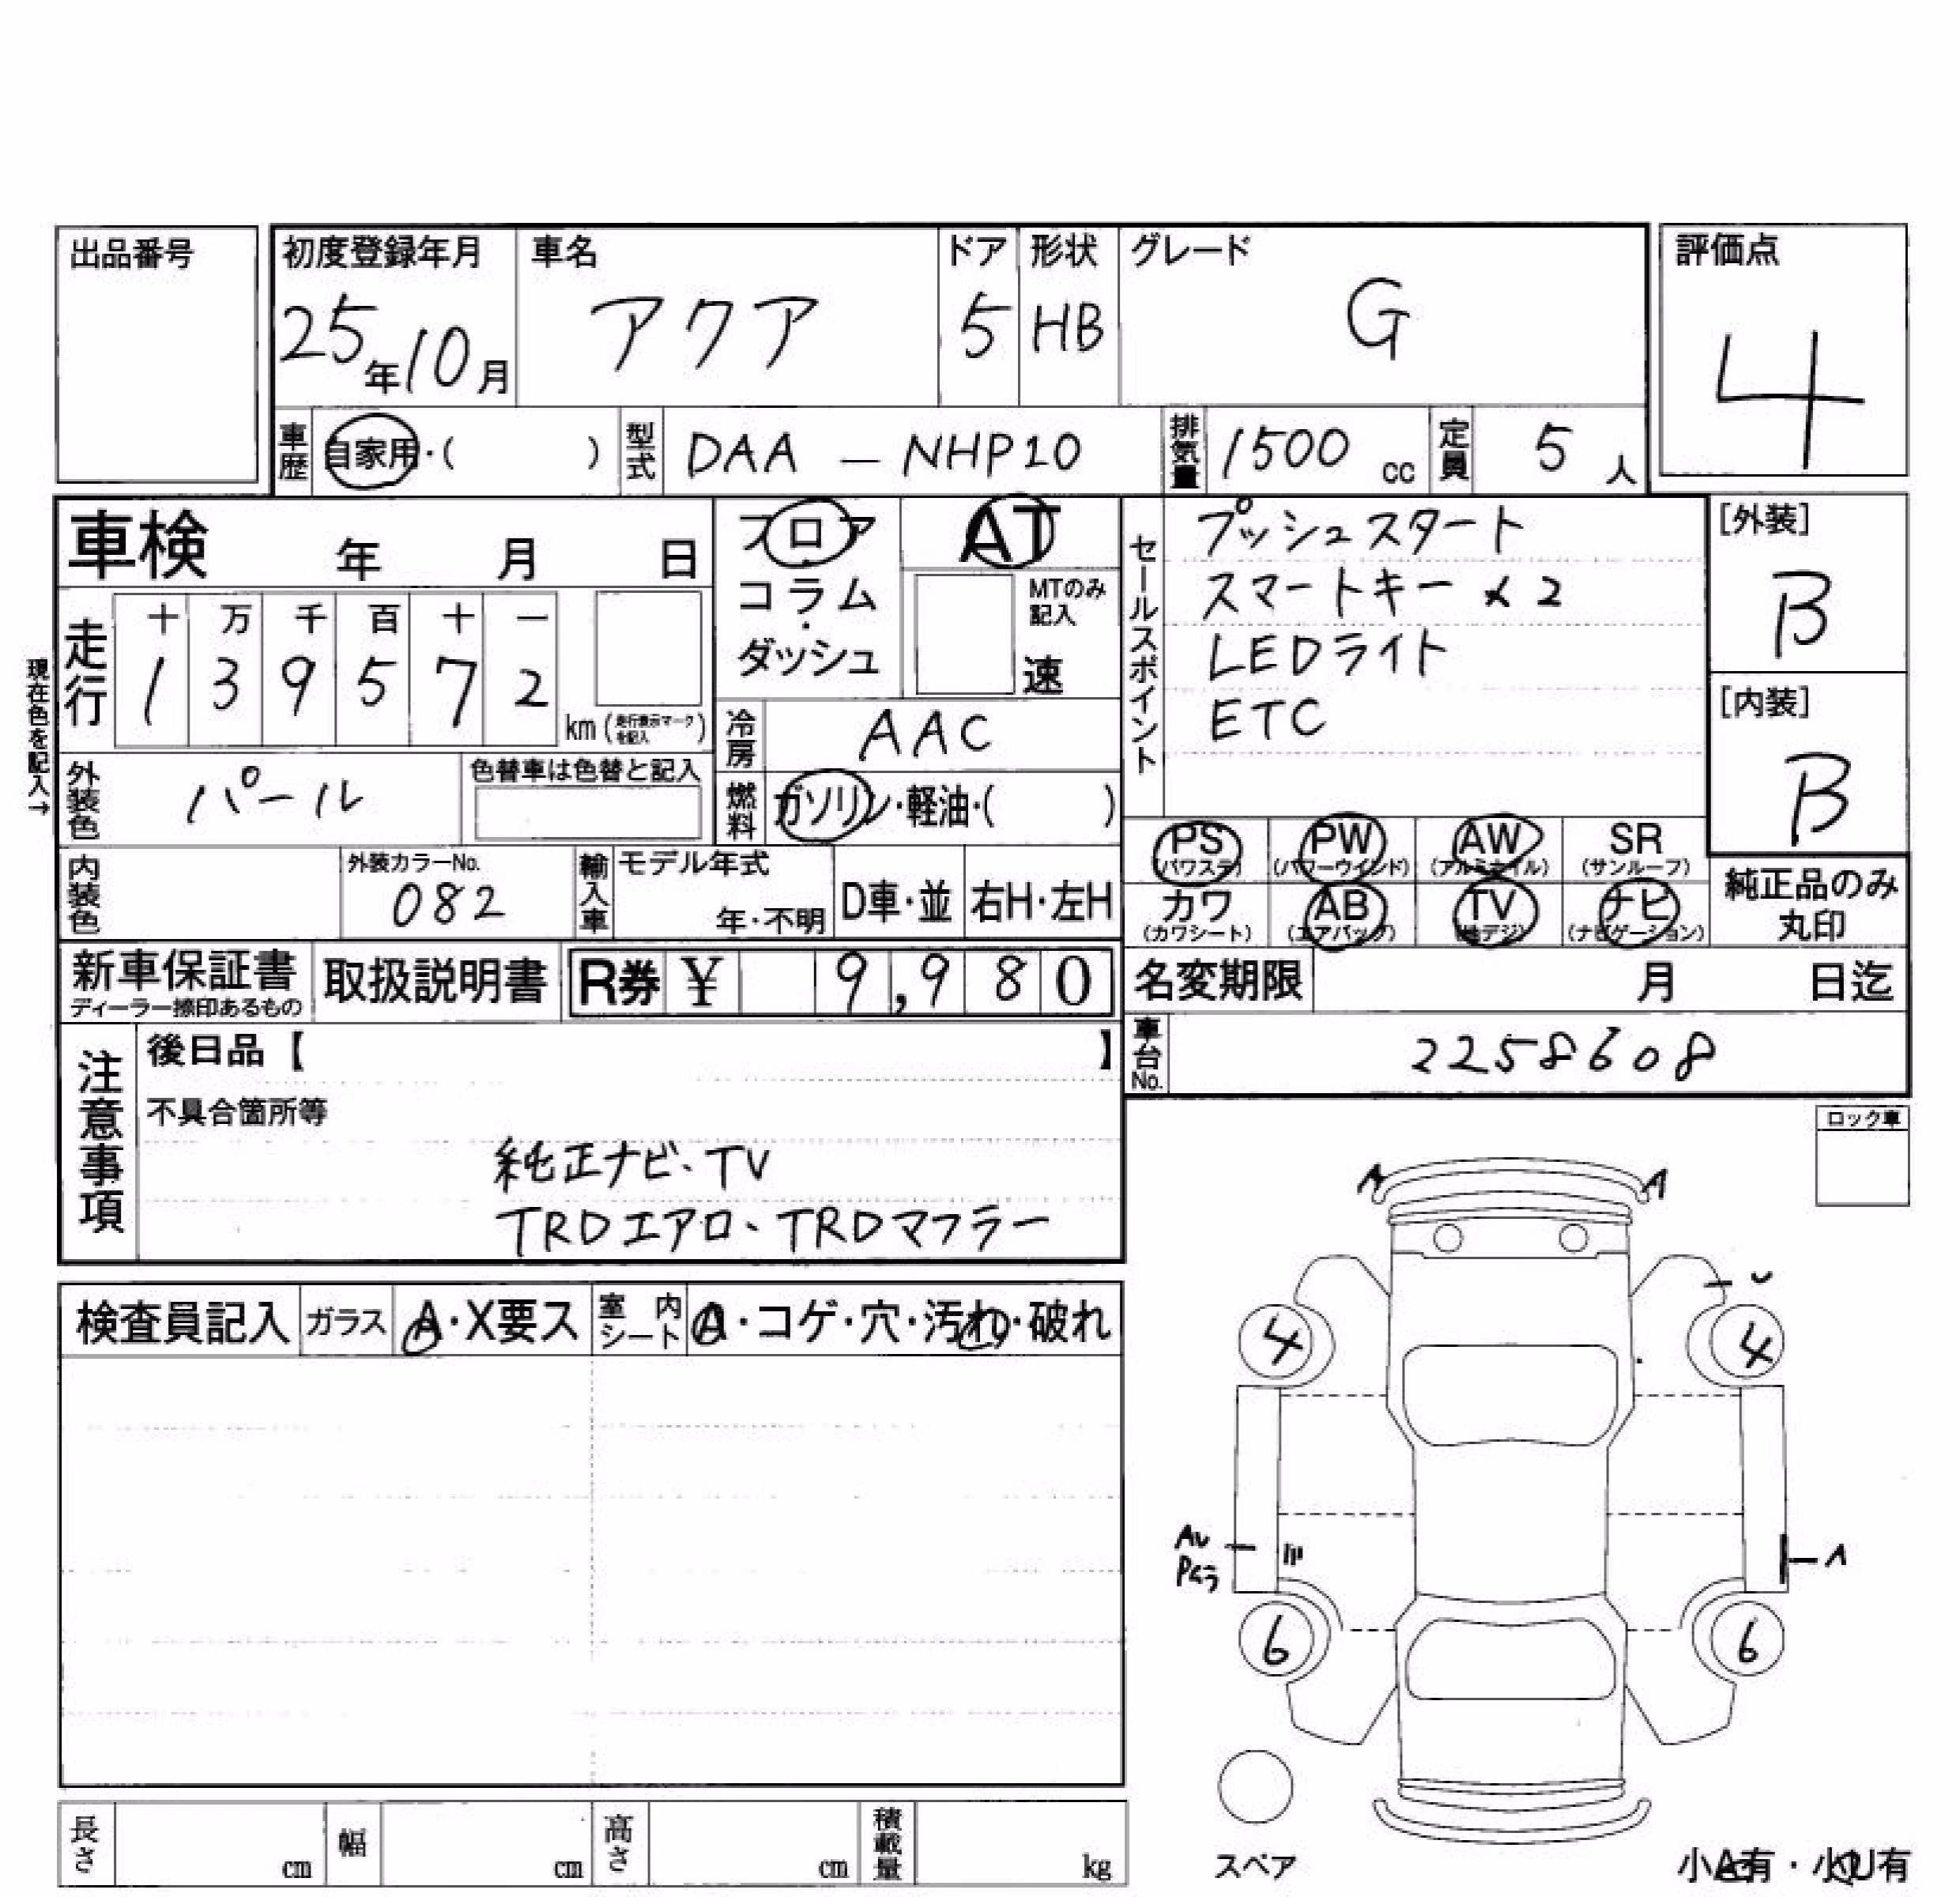 出品番号
初度登録年月
25年10月
車名
アクア
ドア
5
形状
HB
グレード
G
評価点
4
車歴
自家用・( )
型式
DAA - NHP10
排気量
1500 cc
定員
5 人
車検 年 月 日
フロア
コラム
・
ダッシュ
AT
MTのみ
記入
速
セールスポイント
プッシュスタート
スマートキー×2
LEDライト
ETC
[外装]
B
[内装]
B
現在色を記入→
走行
十 万 千 百 十 一
1 3 9 5 7 2
km(走行表示マークを記入)
冷房
AAC
外装色
パール
色替車は色替と記入
燃料
ガソリン・軽油・( )
PS
(パワステ)
PW
(パワーウインド)
AW
(アルミホイル)
SR
(サンルーフ)
カワ
(カワシート)
AB
(エアバッグ)
TV
(地デジ)
ナビ
(ナビゲーション)
純正品のみ
丸印
内装色
外装カラーNo.
082
輸入車
モデル年式
年・不明
D車・並
右H・左H
新車保証書
ディーラー捺印あるもの
取扱説明書
R券 ¥ 9,980
名変期限 月 日迄
車台No.
2258608
注意事項
後日品【 】
不具合箇所等
純正ナビ、TV
TRDエアロ、TRDマフラー
ロック車
検査員記入
ガラス
A・X要ス
室内シート
A・コゲ・穴・汚れ・破れ
A
4
4
AU
A
6
6
スペア
小A有・小U有
長さ cm
幅 cm
高さ cm
積載量 kg